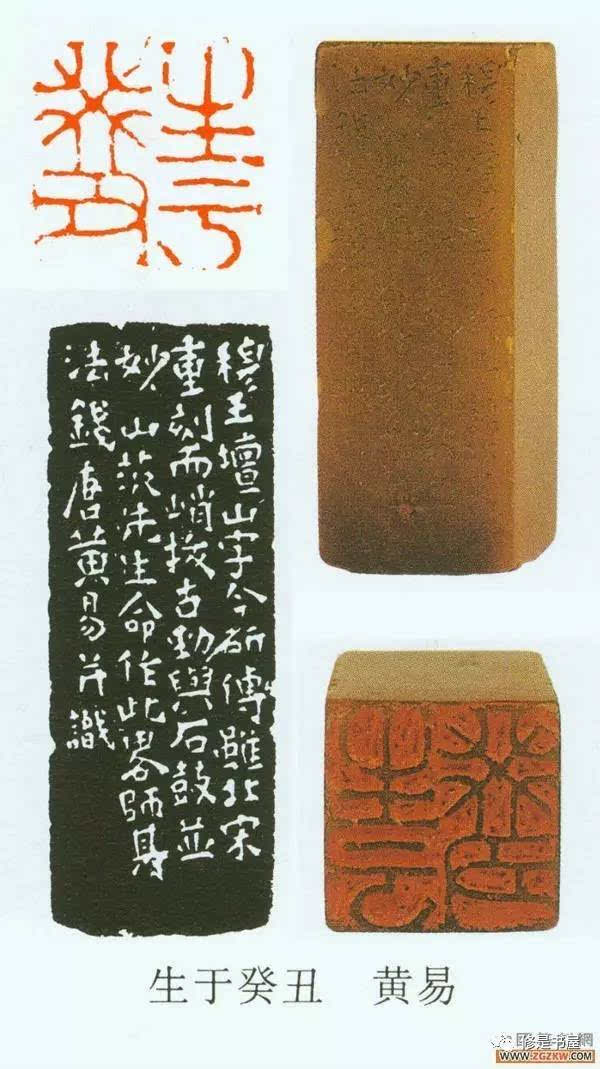 生于
癸丑
穆王壇山字今所傳雖北宋
重刻而峭拔古勁與石鼓並
妙山茨先生命作此畧師其
法錢唐黃易并識
生于癸丑 黄易
修是书屋
WWW.ZGZKW.COM